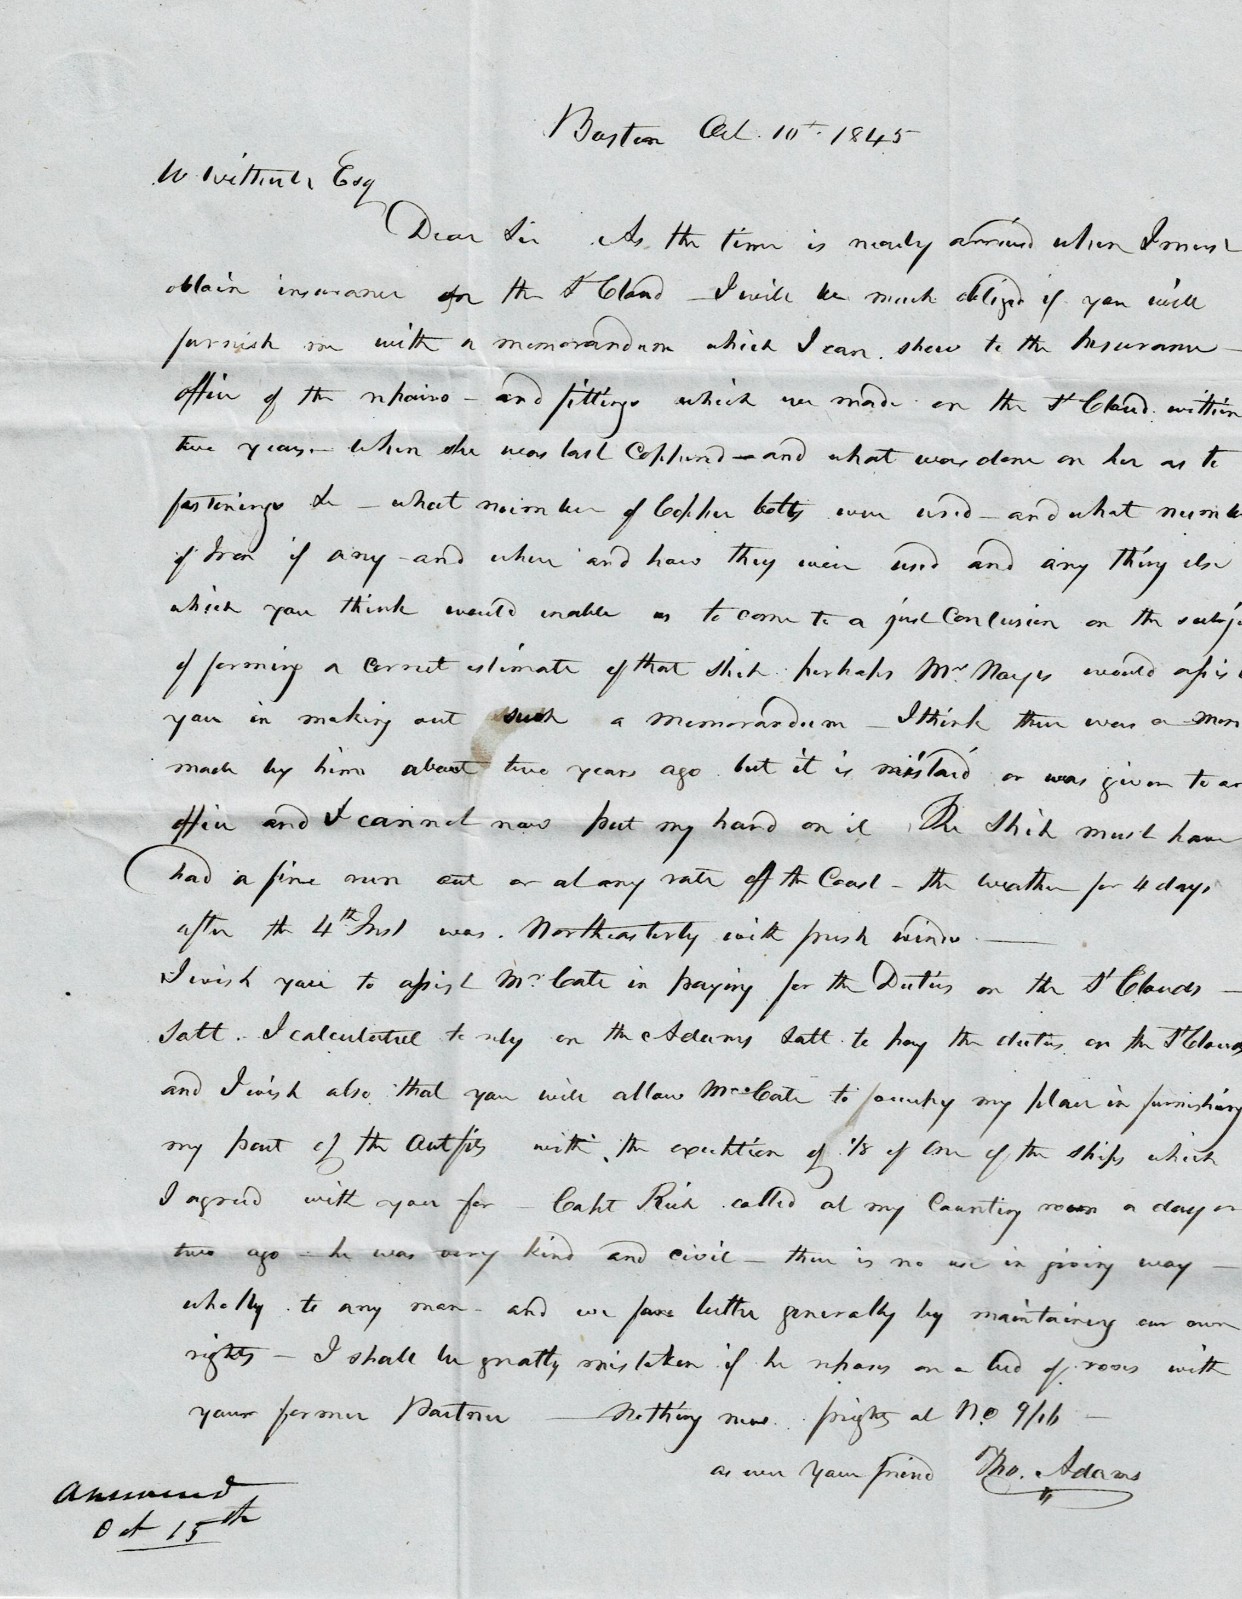 Boston Oct. 10th 1845
W Esq
Dear Sir As the time is nearly arrived when I must
obtain insurance for the St Cloud – I will be much obliged if you will
furnish me with a memorandum which I can shew to the Insurance –
office of the repairs – and fittings which we made on the St Cloud within
two years – when she was last Coppered – and what was done on her as to
fastenings &c – what number of Copper bolts were used – and what numb
of Iron if any – and where and how they were used and any thing else
which you think would enable us to come to a just Conclusion on the subje
of forming a correct estimate of that Ship perhaps Mr Noyes would assis
you in making out such a memorandum – I think there was a mem
made by him about two years ago but it is mislaid or was given to an
office and I cannot now put my hand on it The Ship must have
had a fine run out or at any rate off the Coast – the weather for 4 days
after the 4th Inst was Northeasterly with fresh winds —
I wish you to assist Mr Cate in paying for the Duties on the St Clouds –
Salt. I calculated to rely on the Adams Salt to pay the duties on the St Clouds
and I wish also that you will allow Mr Cate to occupy my place in furnishing
my part of the Outfits with the exception of 1/8 of one of the ships which
I agreed with you for – Capt Rich called at my Counting room a day or
two ago – he was very kind and civil – there is no use in giving way –
wholly to any man – and we fare better generally by maintaining our own
rights – I shall be greatly mistaken if he reposes on a bed of roses with
your former Partner — Nothing new frights at N.O 9/16 –
as ever your friend Tho. Adams
Answered
Oct 15th